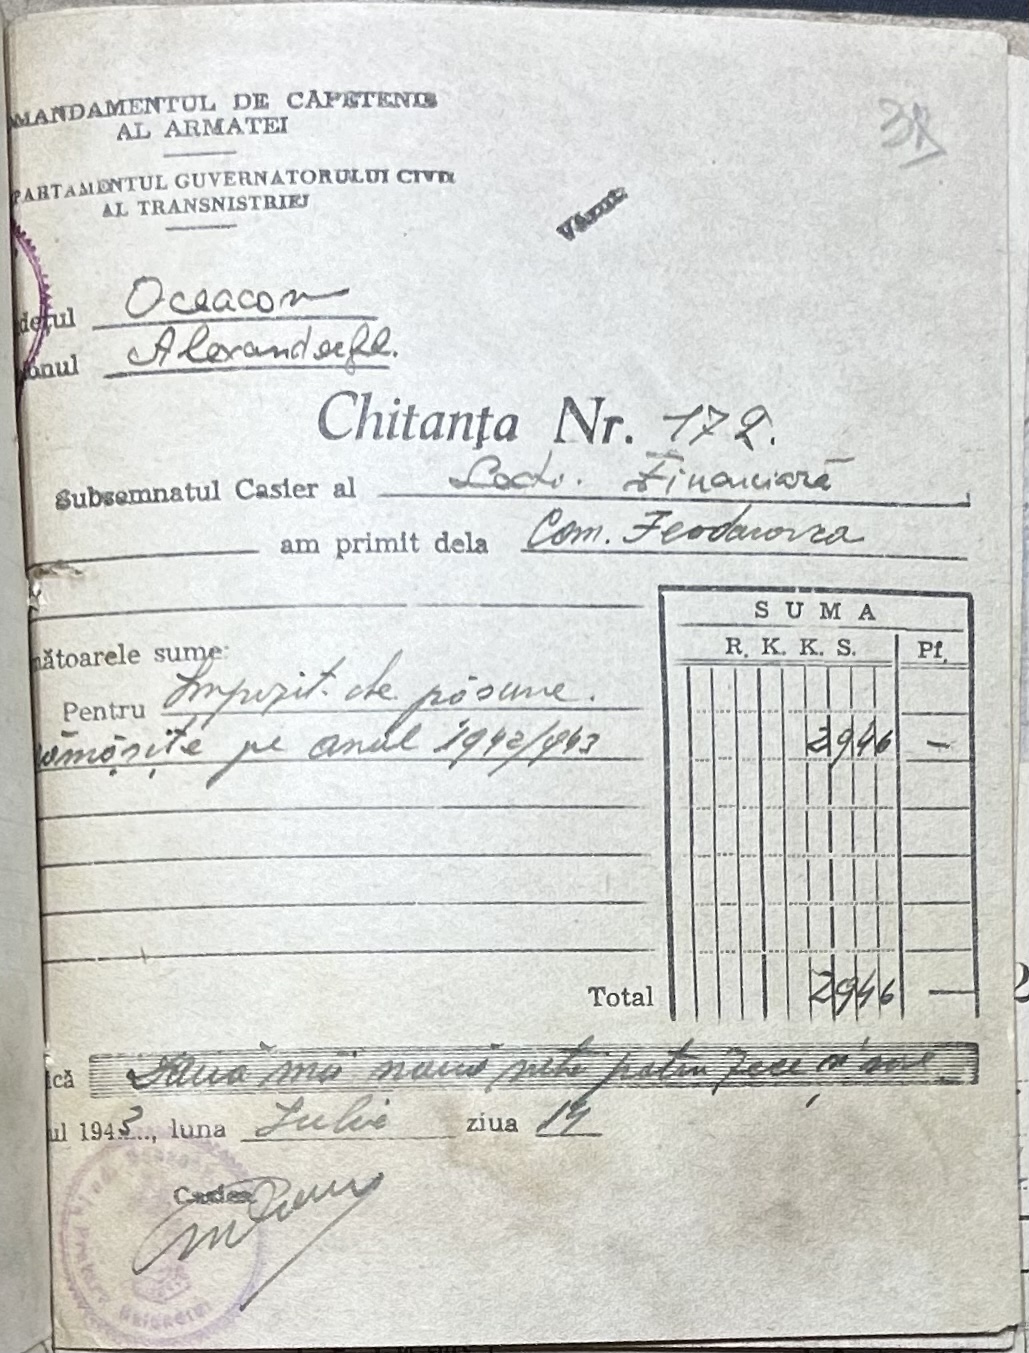 MANDAMENTUL DE CĂPETENIE
AL ARMATEI
PARTAMENTUL GUVERNATORULUI CIVIL
AL TRANSNISTRIEI
Vămit
dețul Oceacov
onul
Chitanța Nr. 172.
Subsemnatul Casier al Financiară
am primit dela Com.
SUMA
nătoarele sume: R. K. K. S. Pf.
Pentru Impozit. de pășune.
rămășițe pe anul 1942/943 2946 —
Total 2946 —
ică Două mii nouă sute patru zece și șase
ul 1943, luna Iulie ziua 14
Casier